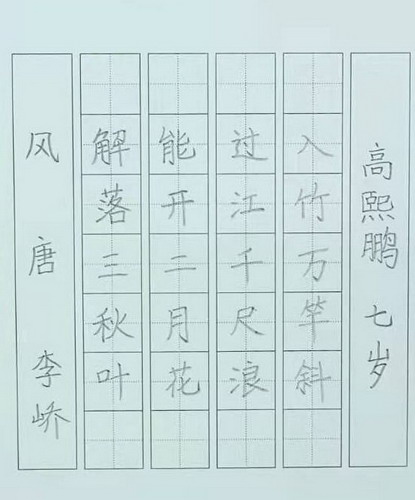 风 唐 李峤
解落三秋叶
能开二月花
过江千尺浪
入竹万竿斜
高熙鹏 七岁